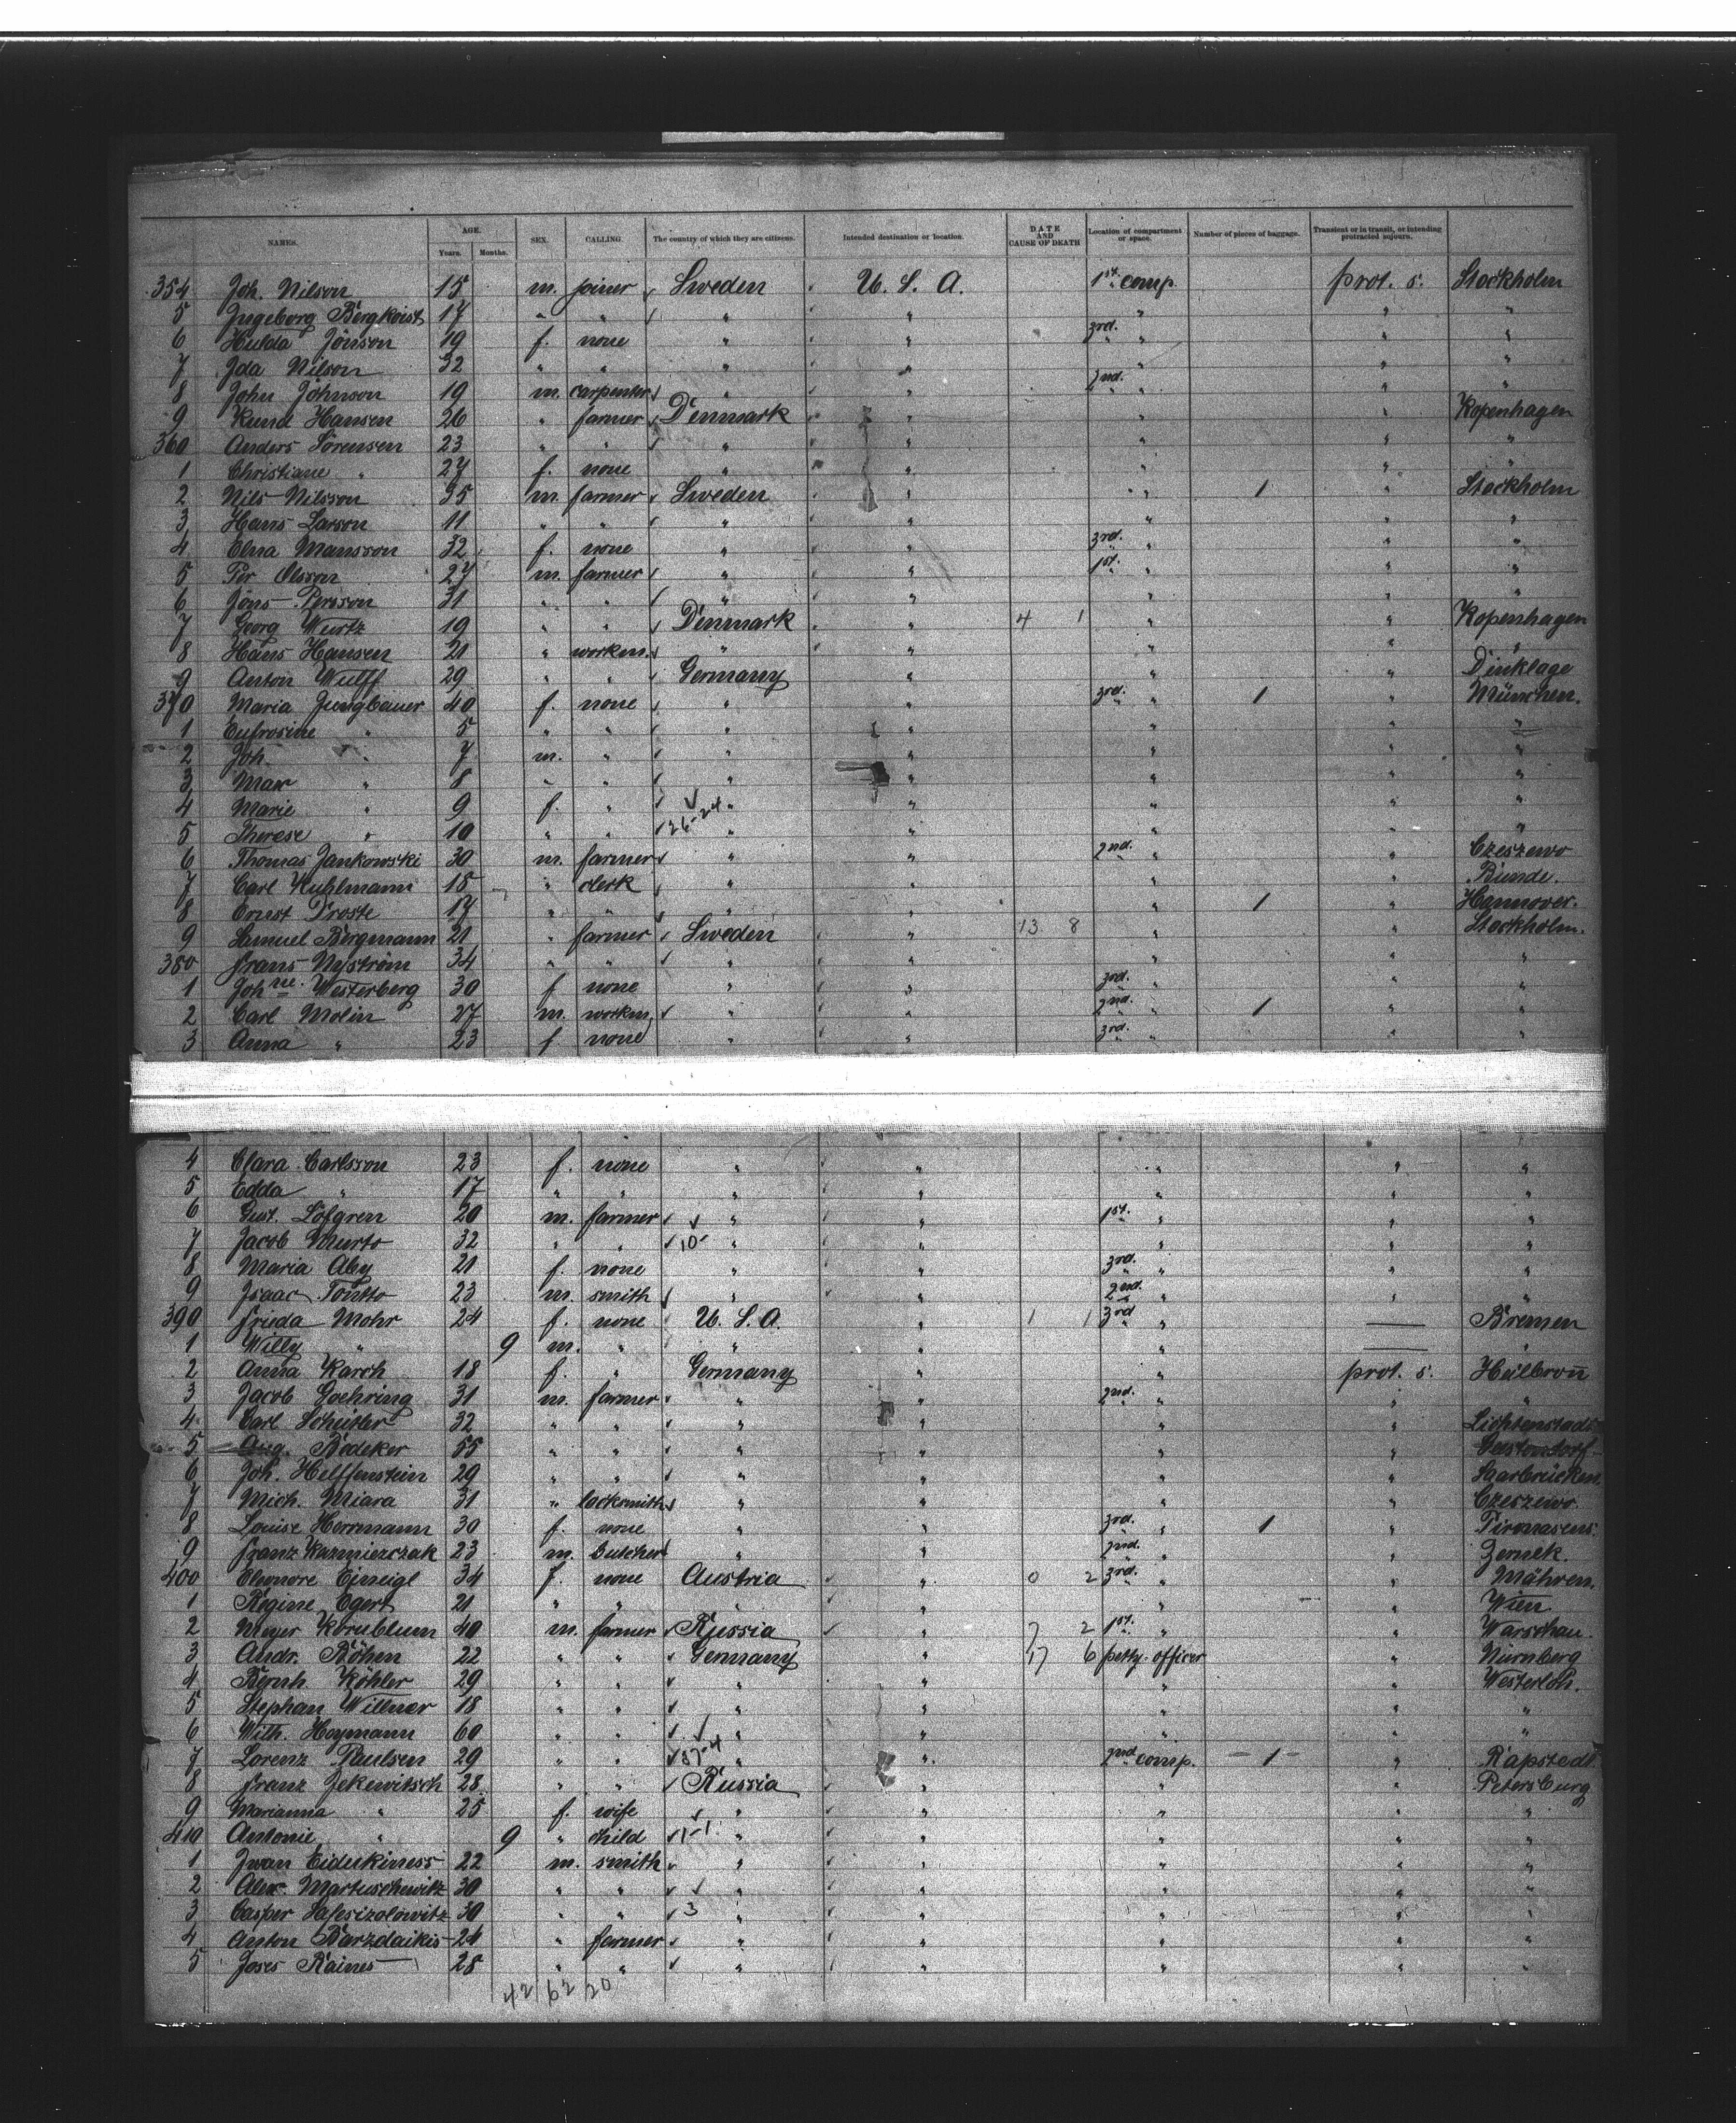 NAMES. AGE. Years. Months. SEX. CALLING. The country of which they are citizens. Intended destination or location. DATE AND CAUSE OF DEATH Location of compartment or space. Number of pieces of baggage. Transient or in transit, or intending protracted sojourn.
354 Joh. Nilson 15 m. joiner Sweden U. S. A. 1st. comp. prot. s. Stockholm
5 Ingeborg Bergkvist 17 " " " " " " "
6 Hulda Jönson 19 f. none " " 3rd. " " "
7 Ida Nilson 32 " " " " " " "
8 John Johnson 19 m. carpenter " " 2nd. " " "
9 Knud Hansen 26 " farmer Denmark " " " Kopenhagen
360 Anders Sörensen 23 " " " " " " "
1 Christiane " 27 f. none " " " " "
2 Nils Nilsson 35 m. farmer Sweden " " " 1 " Stockholm
3 Hans Larson 11 " " " " " " "
4 Elna Mansson 32 f. none " " 3rd. " " "
5 Per Olsson 27 m. farmer " " 1st. " " "
6 Jöns Persson 31 " " " " " " "
7 Georg Wurtz 19 " " Denmark " 4 1 " " Kopenhagen
8 Hans Hansen 21 " workm. " " " " "
9 Anton Wulff 29 " " Germany " " " Dinklage
370 Maria Jungbauer 40 f. none " " 3rd. " 1 " München.
1 Eufrosine " 5 " " " " " " "
2 Joh. " 7 m. " " " " " "
3 Max " 8 " " " " " " "
4 Marie " 9 f. " " " " " "
5 Therese " 10 " " 26-24 " " " " "
6 Thomas Jankowski 30 m. farmer " " 2nd. " " Czeszewo
7 Carl Kuhlmann 15 " clerk " " " " Bünde.
8 Ernst Droste 17 " " " " " 1 " Hannover.
9 Samuel Bergmann 21 " farmer Sweden " 13 8 " " Stockholm.
380 Frans Nyström 34 " " " " " " "
1 Johne. Westerberg 30 f none " " 3rd. " " "
2 Carl Molin 27 m. workm. " " 2nd. " 1 " "
3 Anna " 23 f none " " 3rd. " " "
4 Clara Carlsson 23 f. none " " " " "
5 Edda " 17 " " " " " " "
6 Gust. Löfgren 20 m. farmer " " 1st. " " "
7 Jacob Murto 32 " " 10- " " " " "
8 Maria Aby 21 f. none " " 3rd. " " "
9 Isaac Tontto 23 m. smith " " 2nd. " " "
390 Frieda Mohr 24 f. none U. S. A. " 1 1 3rd " — Bremen
1 Willy " 9 m. " " " " — "
2 Anna Karch 18 f. " Germany " " prot. s. Heilbronn
3 Jacob Goehring 31 m. farmer " " 2nd. " " "
4 Carl 32 " " " " " " Lichtenstadt
5 Aug. Bedeker 55 " " " " " "
6 Joh. Helffenstein 29 " " " " " " Saarbrücken
7 Mich. Miara 31 " locksmith " " " " Czeszewo.
8 Louise Herrmann 30 f. none " " 3rd. " 1 " Pirmasens.
9 Franz Kazmierczak 23 m. butcher " " 2nd. " " Zernik.
400 Eleonore 34 f. none Austria " 0 2 3rd. " " Mähren.
1 Regine Egert 21 " " " " " " Wien
2 Meyer Kornblum 40 m. farmer Russia " 7 2 1st. " " Warschau.
3 Andr. Böhen 22 " " Germany " 17 6 petty-officer " Nürnberg
4 Bernh. Köhler 29 " " " " " " Westerloh.
5 Stephan Willner 18 " " " " " " "
6 Wilh. Hoymann 60 " " " " " " "
7 Lorenz Paulsen 29 " " 37-4 " " 2nd comp. - 1 - " Rapstedt
8 Franz Jekewitsch 28 " " Russia " " " Petersburg
9 Marianna " 25 f. wife " " " " "
410 Antonie " 9 " child 1-1 " " " " "
1 Iwan Eidukiness 22 m. smith " " " " "
2 Alex. Martuschewitz 30 " " " " " " "
3 Casper 30 " " 3 " " " " "
4 Anton Barzdaikis 24 " farmer " " " " "
5 Joses Raines 28 " " " " " " "
42 62 20